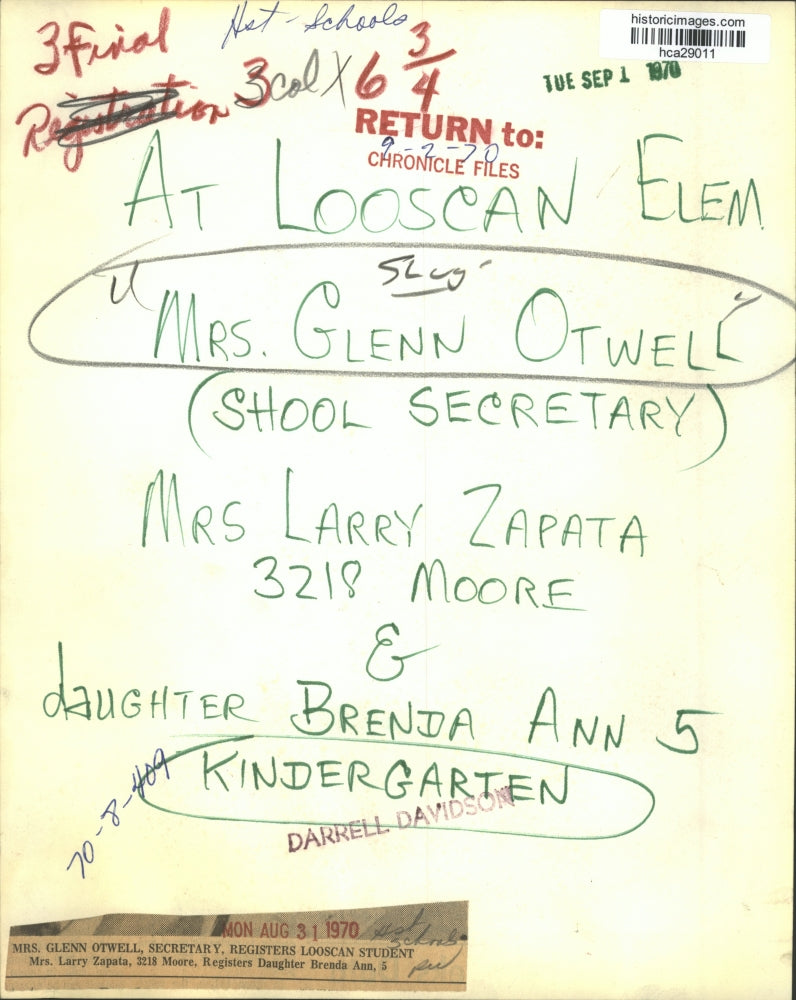 historicimages.com
hca29011
Hst - Schools
3 Final
3 col X 6 3/4
Registration
TUE SEP 1 1970
RETURN to:
9-2-70
CHRONICLE FILES
AT LOOSCAN ELEM.
SLug
"MRS. GLENN OTWELL"
(SHOOL SECRETARY)
MRS LARRY ZAPATA
3218 MOORE
&
daUGHTER BRENDA ANN 5
KINDERGARTEN
70-8-409
DARRELL DAVIDSON
MON AUG 31 1970
Hst
Schools
MRS. GLENN OTWELL, SECRETARY, REGISTERS LOOSCAN STUDENT
Mrs. Larry Zapata, 3218 Moore, Registers Daughter Brenda Ann, 5